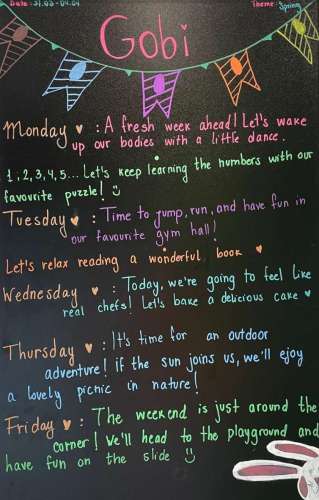 Date: 31.03-04.04
Theme: Spring
Gobi
Monday ♥ : A fresh week ahead! Let's wake
up our bodies with a little dance.
1,2,3,4,5... Let's keep learning the numbers with our
favourite puzzle! ☺
Tuesday ♥ : Time to jump, run, and have fun in
our favourite gym hall!
Let's relax reading a wonderful book ♥
Wednesday ♥ : Today, we're going to feel like
real chefs! Let's bake a delicious cake ♥
Thursday ♥ : It's time for an outdoor
adventure! if the sun joins us, we'll ejoy
a lovely picnic in nature!
Friday ♥ : The weekend is just around the
corner! We'll head to the playground and
have fun on the slide ☺